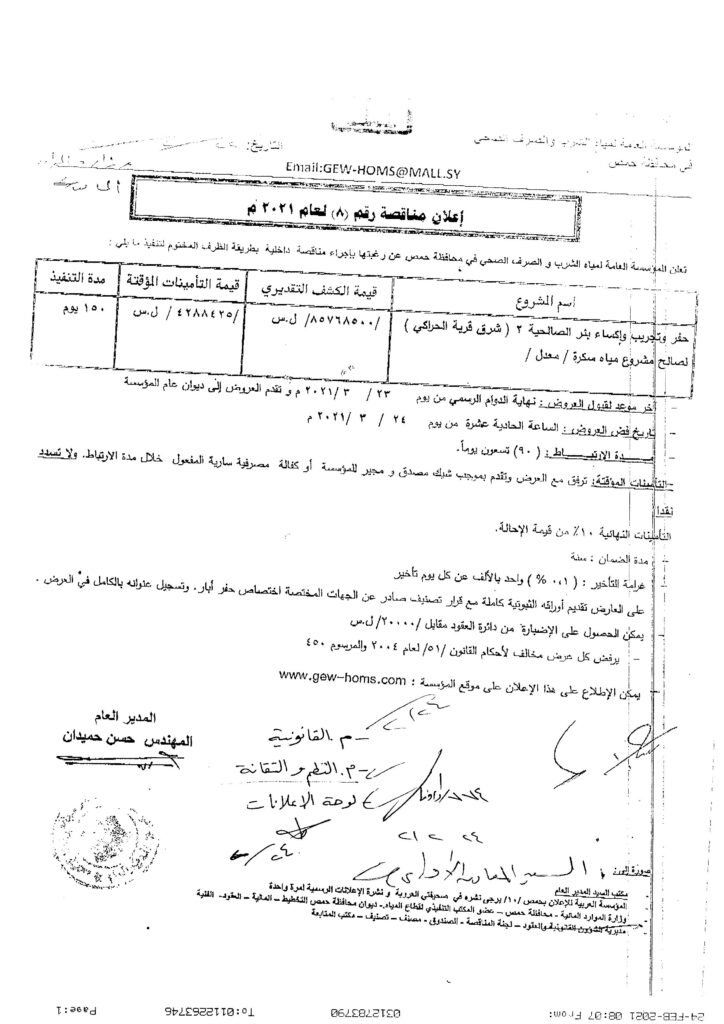 المؤسسة العامة لمياه الشرب والصرف الصحي
في محافظة حمص
التاريخ:
Email:GEW-HOMS@MALL.SY
إعلان مناقصة رقم (٨) لعام ٢٠٢١ م
تعلن المؤسسة العامة لمياه الشرب و الصرف الصحي في محافظة حمص عن رغبتها بإجراء مناقصة داخلية بطريقة الظرف المختوم لتنفيذ ما يلي :
اسم المشروع قيمة الكشف التقديري قيمة التأمينات المؤقتة مدة التنفيذ
حفر وتجريب وإكساء بئر الصالحية ٢ ( شرق قرية الحراكي ) /٨٥٧٦٨٥٠٠/ ل.س /٤٢٨٨٤٢٥/ ل.س ١٥٠ يوم
لصالح مشروع مياه سكرة / معدل /
- آخر موعد لقبول العروض : نهاية الدوام الرسمي من يوم ٢٣ / ٣ /٢٠٢١ م و تقدم العروض إلى ديوان عام المؤسسة
- تاريخ فض العروض : الساعة الحادية عشرة من يوم ٢٤ / ٣ / ٢٠٢١ م
- مدة الارتباط : ( ٩٠ ) تسعون يوماً.
- التأمينات المؤقتة: ترفق مع العرض وتقدم بموجب شيك مصدق و مجير للمؤسسة أو كفالة مصرفية سارية المفعول خلال مدة الارتباط. ولا تسدد
نقدا
التأمينات النهائية ١٠٪ من قيمة الإحالة.
- مدة الضمان : سنة
- غرامة التأخير : ( ٠,١ % ) واحد بالألف عن كل يوم تأخير
على العارض تقديم أوراقه الثبوتية كاملة مع قرار تصنيف صادر عن الجهات المختصة اختصاص حفر آبار. وتسجيل عنوانه بالكامل في العرض .
- يمكن الحصول على الإضبارة من دائرة العقود مقابل /٢٠٠٠٠/ ل.س
- يرفض كل عرض مخالف لأحكام القانون /٥١/ لعام ٢٠٠٤ والمرسوم ٤٥٠
- يمكن الإطلاع على هذا الإعلان على موقع المؤسسة : www.gew-homs.com
المدير العام
المهندس حسن حميدان
م. القانونية
م. النظم و التقانة
لوحة الإعلانات
٢٤ ٢ ٢١
صورة إلى:
- مكتب السيد المدير العام
- المؤسسة العربية للإعلان بحمص /١٠/ يرجى نشره في صحيفتي العروبة و نشرة الإعلانات الرسمية لمرة واحدة
- وزارة الموارد المائية - محافظة حمص – عضو المكتب التنفيذي لقطاع المياه- ديوان محافظة حمص التخطيط – المالية – العقود- الفنية
- مديرية الشؤون القانونية والعقود – لجنة المناقصة - الصندوق - مصنف – تصنيف – مكتب المتابعة
24-FEB-2021 08:07 From: 0312783790 To:0112263746 Page:1